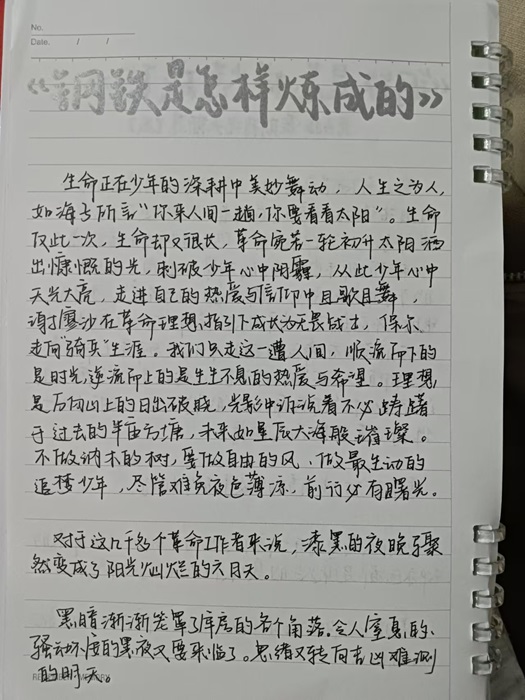 No.
Date. / /
《钢铁是怎样炼成的》
生命正在少年的深耕中美妙舞动，人生之为人，
如海子所言“你来人间一趟，你要看看太阳”。生命
仅此一次，生命却又很长，革命宛若一轮初升太阳洒
出慷慨的光，刺破少年心中阴霾，从此少年心中
天光大亮，走进自己的热爱与信仰中且歌且舞，
谢廖沙在革命理想指引下成长为无畏战士，保尔
走向“骑兵”生涯。我们只走这一遭人间，顺流而下的
是时光，逆流而上的是生生不息的热爱与希望。理想
是后切山上的日出破晓，光影中诉说着不必踌躇
于过去的半亩方塘，未来如星辰大海般璀璨。
不做讷木的树，要做自由的风、做最生动的
追楼少年，尽管难免夜色薄凉，前行必有曙光。
对于这几千多个革命工作者来说，漆黑的夜晚骤
然变成了阳光灿烂的六月天。
黑暗渐渐笼罩了库房的各个角落。令人窒息的、
骚动不安的黑夜又要来临了。思绪又转向吉凶难测
的明天。